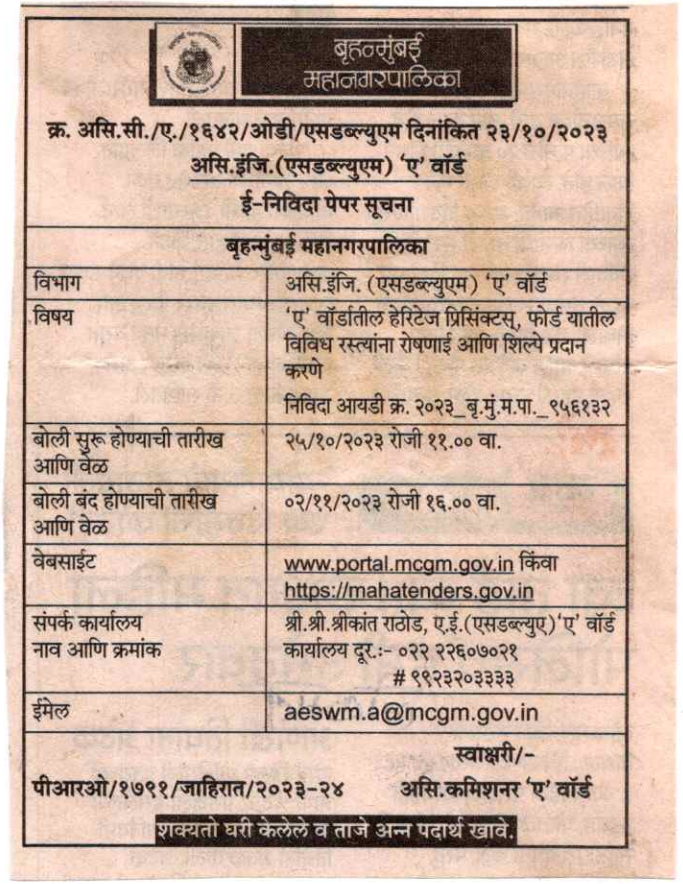 बृहन्मुंबई
महानगरपालिका
क्र. असि.सी./ए./१६४२/ओडी/एसडब्ल्युएम दिनांकित २३/१०/२०२३
असि.इंजि.(एसडब्ल्युएम) ‘ए’ वॉर्ड
ई-निविदा पेपर सूचना
बृहन्मुंबई महानगरपालिका
विभाग
असि.इंजि. (एसडब्ल्युएम) ‘ए’ वॉर्ड
विषय
‘ए’ वॉर्डातील हेरिटेज प्रिसिंक्टस्, फोर्ड यातील
विविध रस्त्यांना रोषणाई आणि शिल्पे प्रदान
करणे
निविदा आयडी क्र. २०२३_बृ.मुं.म.पा._९५६१३२
बोली सुरू होण्याची तारीख
आणि वेळ
२५/१०/२०२३ रोजी ११.०० वा.
बोली बंद होण्याची तारीख
आणि वेळ
०२/११/२०२३ रोजी १६.०० वा.
वेबसाईट
www.portal.mcgm.gov.in किंवा
https://mahatenders.gov.in
संपर्क कार्यालय
नाव आणि क्रमांक
श्री.श्री.श्रीकांत राठोड, ए.ई.(एसडब्ल्युए)‘ए’ वॉर्ड
कार्यालय दूर.:- ०२२ २२६०७०२१
# ९९२३२०३३३३
ईमेल
aeswm.a@mcgm.gov.in
स्वाक्षरी/-
पीआरओ/१७९१/जाहिरात/२०२३-२४ असि.कमिशनर ‘ए’ वॉर्ड
शक्यतो घरी केलेले व ताजे अन्न पदार्थ खावे.